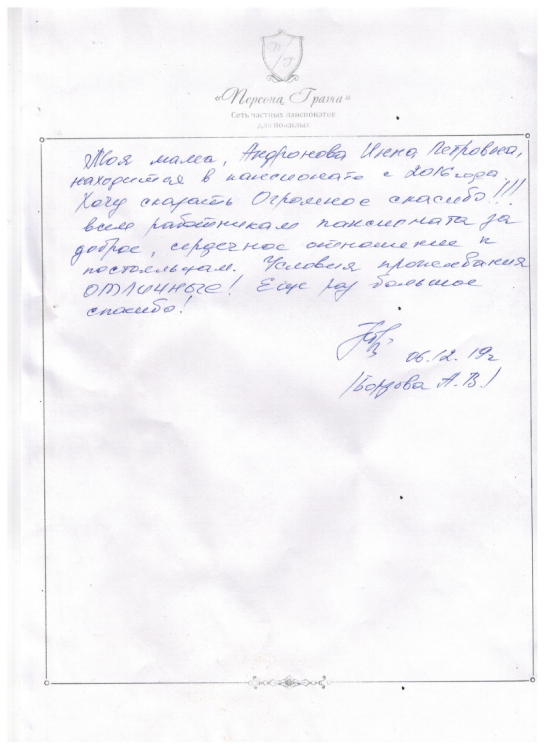 П Г
«Персона Грата»
Сеть частных пансионатов
для пожилых
Моя мама, Андронова Инна Петровна,
находится в пансионате с 2016 года.
Хочу сказать Огромное спасибо!!!
всем работникам пансионата за
доброе, сердечное отношение к
постояльцам. Условия проживания
ОТЛИЧНЫЕ! Еще раз большое
спасибо!
06.12.19г
/ А.В./